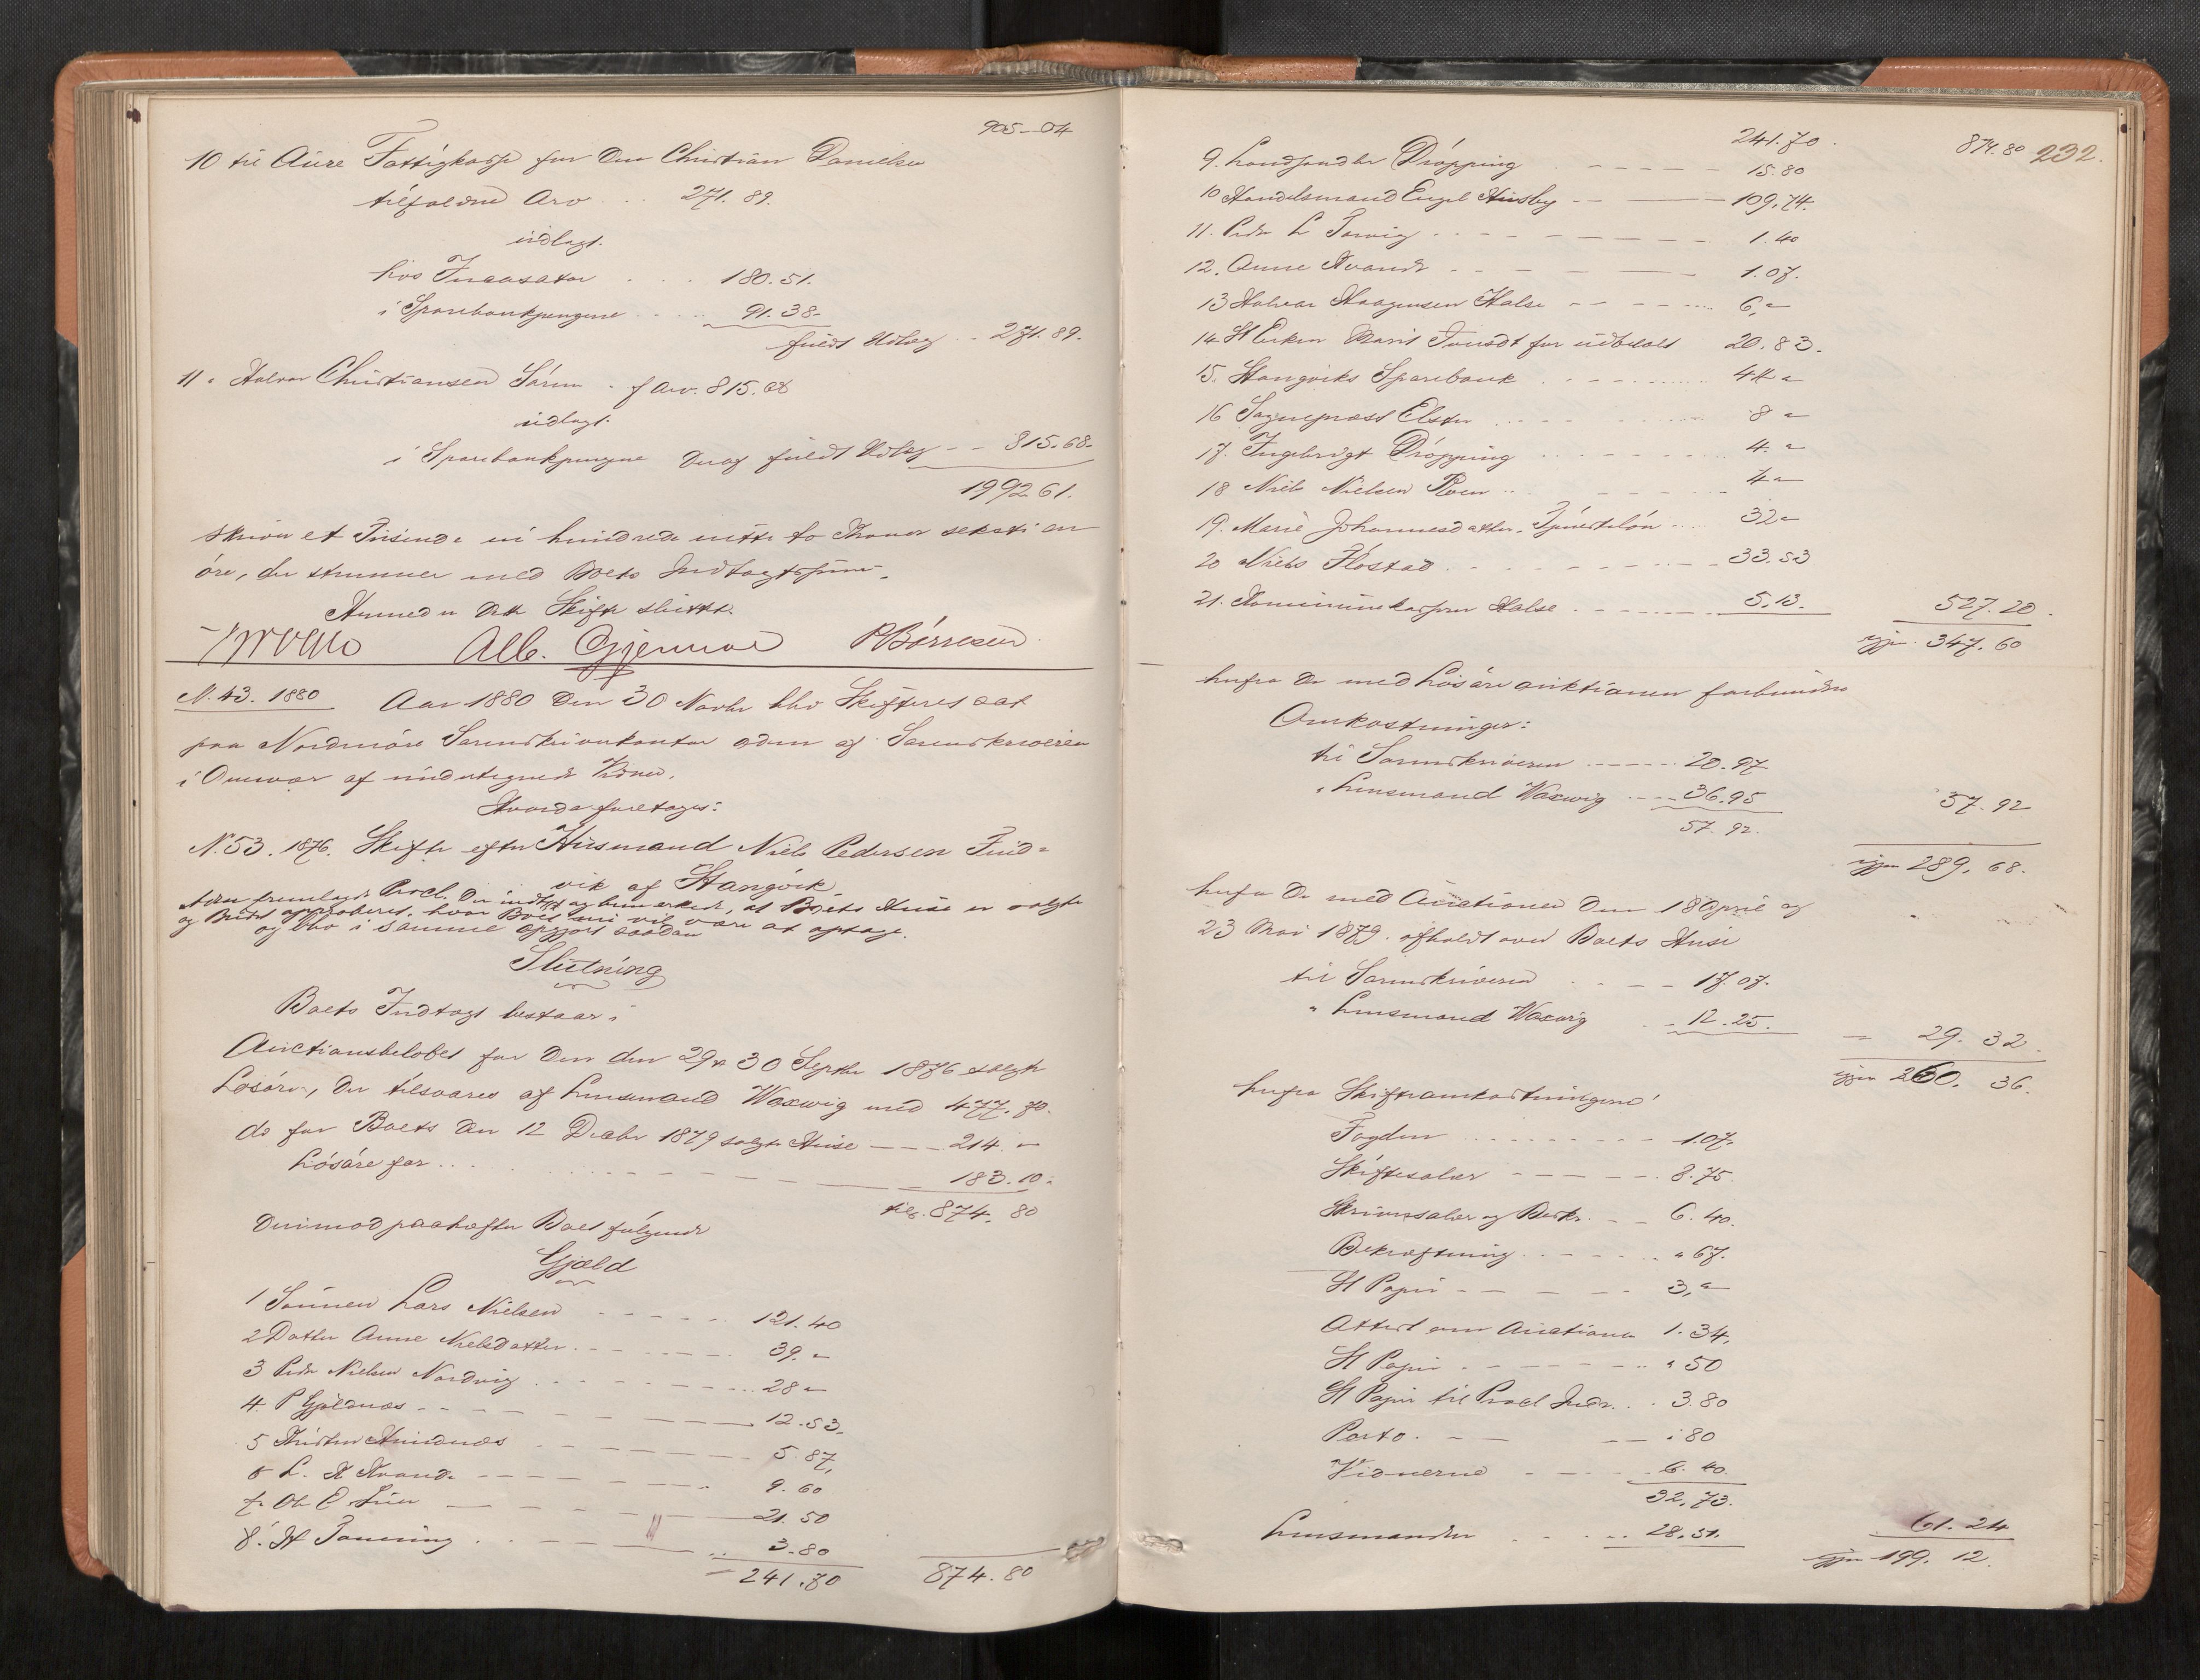 905-04
10 til Aure Fattigkasse for den Christian Danielsen
tilfaldne Arv . . . 271. 89.
udlagt.
hos Incassator . . . 180.51.
i Sparebankpengene . . . . 91.38-
fuldt Udlæg . . 271.89.
11. Halvor Christiansen Sørum - f Arv. 815.68
udlagt.
i Sparebankpengene deraf fuldt Udlæg - - 815.68-
1992 61.
skriver et Tusinde ni hundrede nitti to Kroner seksti en
øre, der stemmer med Boets Indtægtssum.
Hermed er dette Skifte sluttet.
Alb. Gjennæs P Børresen
N. 43. 1880 Aar 1880 den 30 Novbr blev Skifteret sat
paa Nordmøre Sorenskriverkontor adm af Sorenskriveren
i Overvær af undertegnede Vidner.
Hvorda foretoges:
N. 53. 1876. Skifte efter Husmand Niels Pedersen Tuid=
vik af Stangvik
blev fremlagt Procl. der indtages og bemærkes, at Boets Huse er solgte
og Budet approberet, hvor Boet nu vil være at optage.
og blev i samme opgjort saadan
Slutning
Boets Indtægt bestaar i
Auctionsbeløbet for den den 29 & 30 Septbr 1876 solgte
Løsøre, der tilsvares af Lensmand Waxwig med 477. 70.
do for Boets den 12 Decbr 1879 solgte Huse - - - 214. "
Løsøre for . . . . . . 183. 10.
tils. 874. 80
Derimod paahefter Boet følgende
Gjæld
1 Sønnen Lars Nielsen - - - - 121.40
2 Datter Anne Nielsdatter. - - - - 39. "
3 Peder Nielsen Nordvig . - - - - 28 "
4. P Gjeldnæs - - - - - 12.53.
5 Kristen - - - - 5.87,
6 L. H Kvande - - - - 9.60
7. Ole E - - - - 21.50
8. H Tønning . . - - - - 3.80
241.70 874.80
241.70. 874.80 232.
9. Landhandler Drøpping - - - - - 15.80
10 Handelsmand Engel Huseby - - - 109.74.
11. Peder L Torvig . - - - - - 1.40
12. Anne Kvande - - - - - 1.07.
13 Halvor Haagensen Halse - - - - 6,"
14. St Enken Marit Tvedt for udbetalt 20.83.
15. Stangviks Sparebank . - - - - 44 "
16 Sognepræst Elster . . . . 8 "
17. Ingebrigt Drøpping . . . . 4. "
18 Niels Nielsen Roen . . - - - 4 "
19. Marie Johannesdatter . . . 32 "
20 Niels Flostad . - - - - 33.53
21. Kommunekassen Halse . - - - - 5.13. 527.20.
igjen 347. 60
herfra de med Løsøreauktionen forbundne
Omkostninger:
til Sorenskriveren - - - - 20.97
" Lensmand Waxwig - - - 36.95 57. 92
57. 92.
igjen 289. 68.
herfra de med Auctionen den 18 April og
23 Mai 1879. afholdt over Boets Huse
til Sorenskriveren . - - 17.07.
" Lensmand Waxwig . . 12.25. - 29. 32.
igjen 260. 36.
herfra Skifteomkostningerne
Fogden . . . . . - - - 1.07.
Skiftesalær - - - - - 8.75.
Skriversalær og Beskr. - - 6.40.
Bekræftning . - - - - " 67.
St Papir - - - - - 3,"
Attest om Auctionen 1.34.
St Papir . - - - - " 50
St Papir til Procl Indr. . . 3.80
Porto. - - - - " 80
Vidnerne - - - - 6.40.
32.73.
Lensmanden . - - . . 28.51. 61.24
igjen 199. 12.